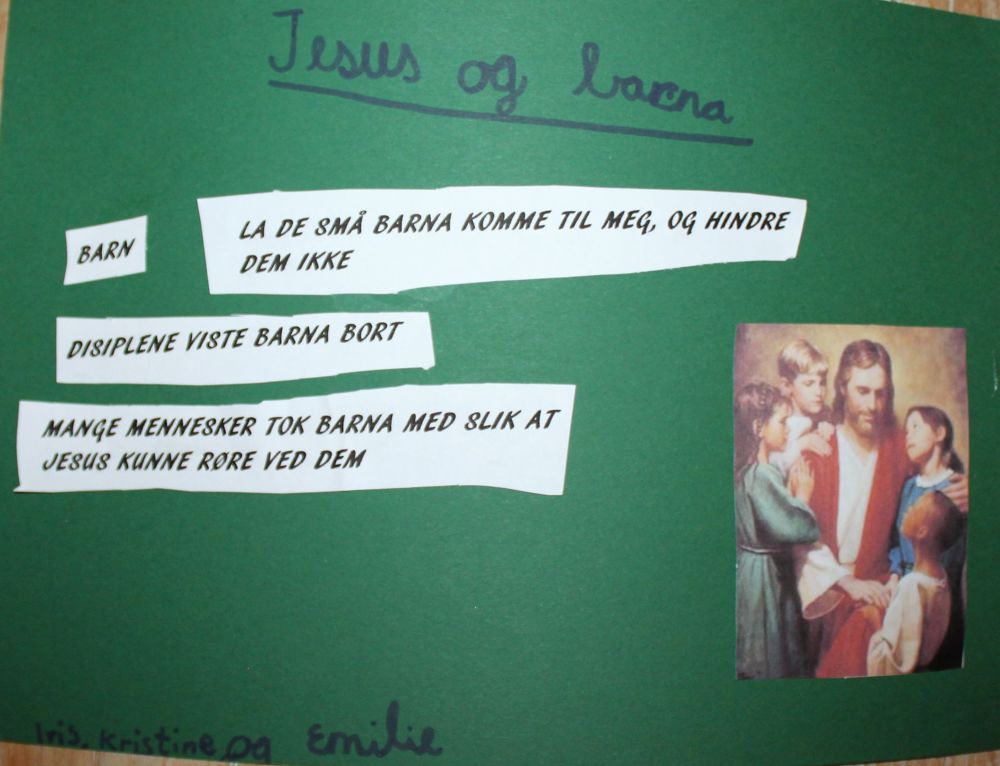 Jesus og barna
BARN
LA DE SMÅ BARNA KOMME TIL MEG, OG HINDRE
DEM IKKE
DISIPLENE VISTE BARNA BORT
MANGE MENNESKER TOK BARNA MED SLIK AT
JESUS KUNNE RØRE VED DEM
Iris, Kristine og Emilie